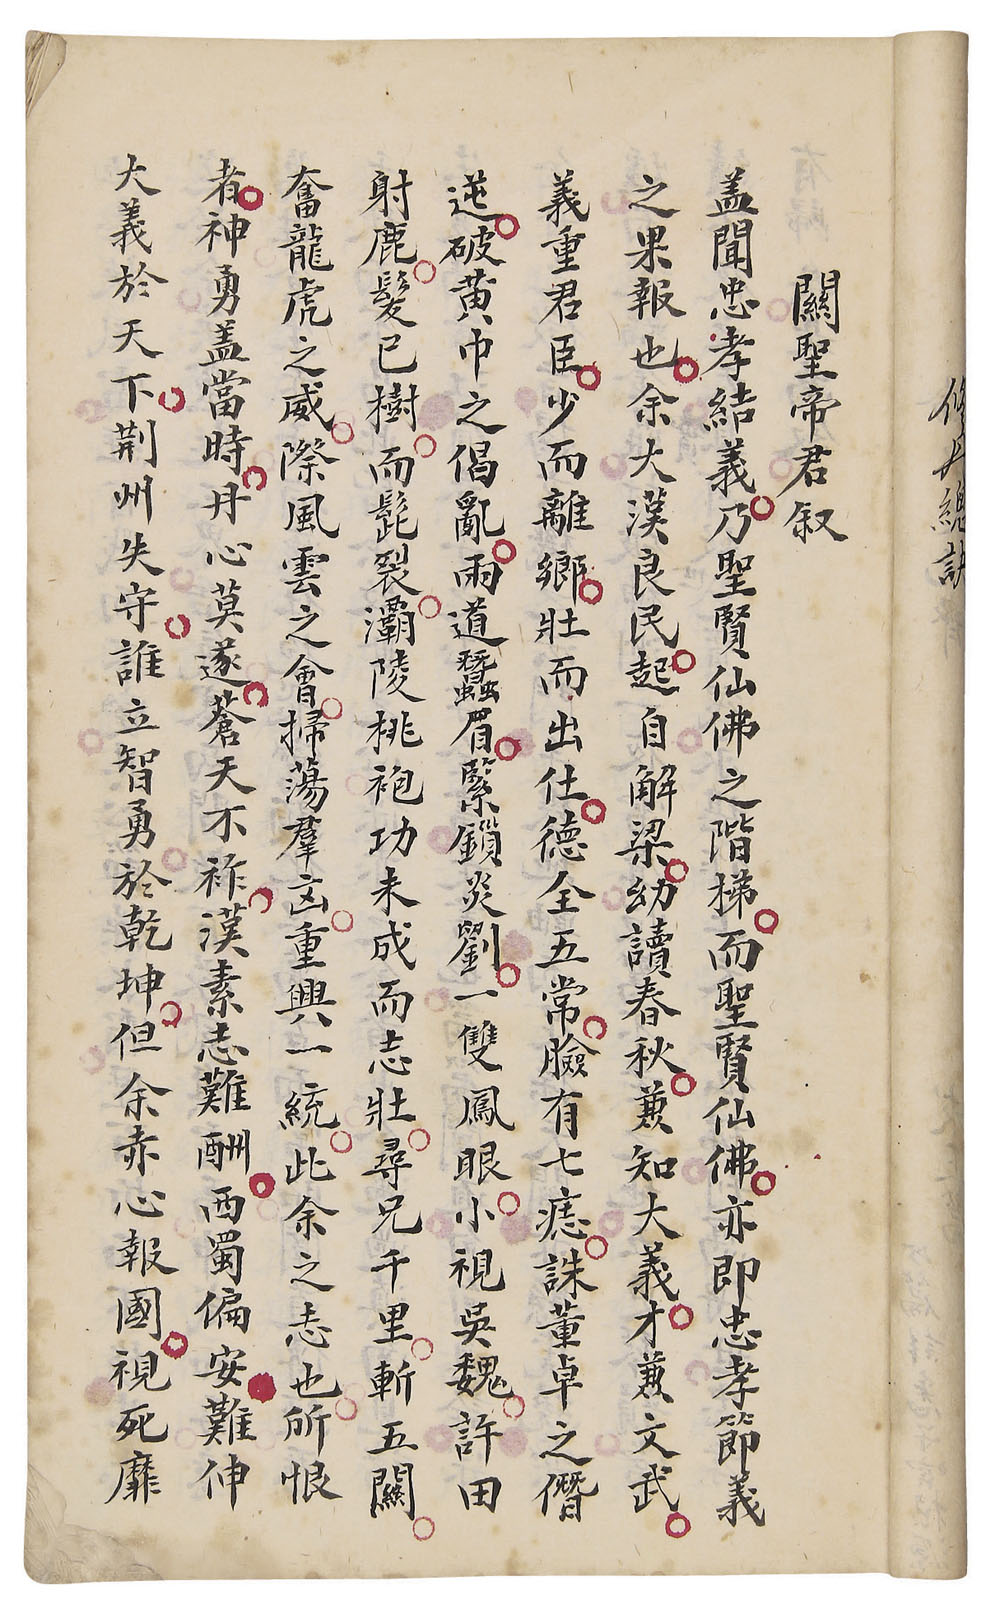 修丹總訣
關聖帝君叙
盖聞忠孝結義乃聖賢仙佛之階梯而聖賢仙佛亦即忠孝節義
之果報也余大漢良民起自解梁幼讀春秋兼知大義才兼文武
義重君臣少而離鄉壯而出仕德全五常臉有七痣誅董卓之僭
逆破黃巾之倡亂兩道蠶眉緊鎖炎劉一雙鳳眼小視吳魏許田
射鹿髮已樹而髭裂灞陵桃袍功未成而志壯尋兄千里斬五關
奮龍虎之威際風雲之會掃蕩羣凶重興一統此余之志也所恨
者神勇盖當時丹心莫遂蒼天不祚漢素志難酬西蜀偏安難伸
大義於天下荆州失守誰立智勇於乾坤但余赤心報國視死靡